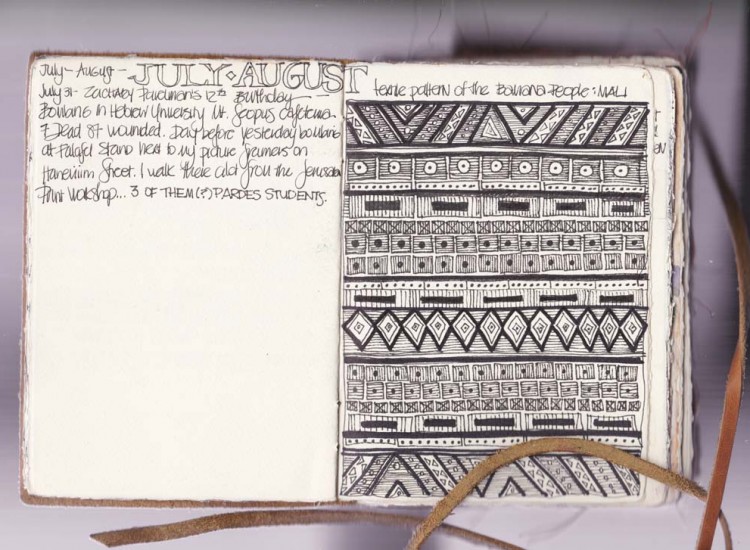 July - August - JULY · AUGUST
July 31 - Zachary 12th Birthday
Bombing in Hebrew University Mt. Scopus Cafeteria.
7 Dead 87 wounded. Day before yesterday bombing
at Falafel stand next to my picture framers on
Haneviim Street. I walk there a lot from the Jerusalem
Print Workshop... 3 OF THEM (?) PARDES STUDENTS.
textile pattern of the Bamana People: MALI